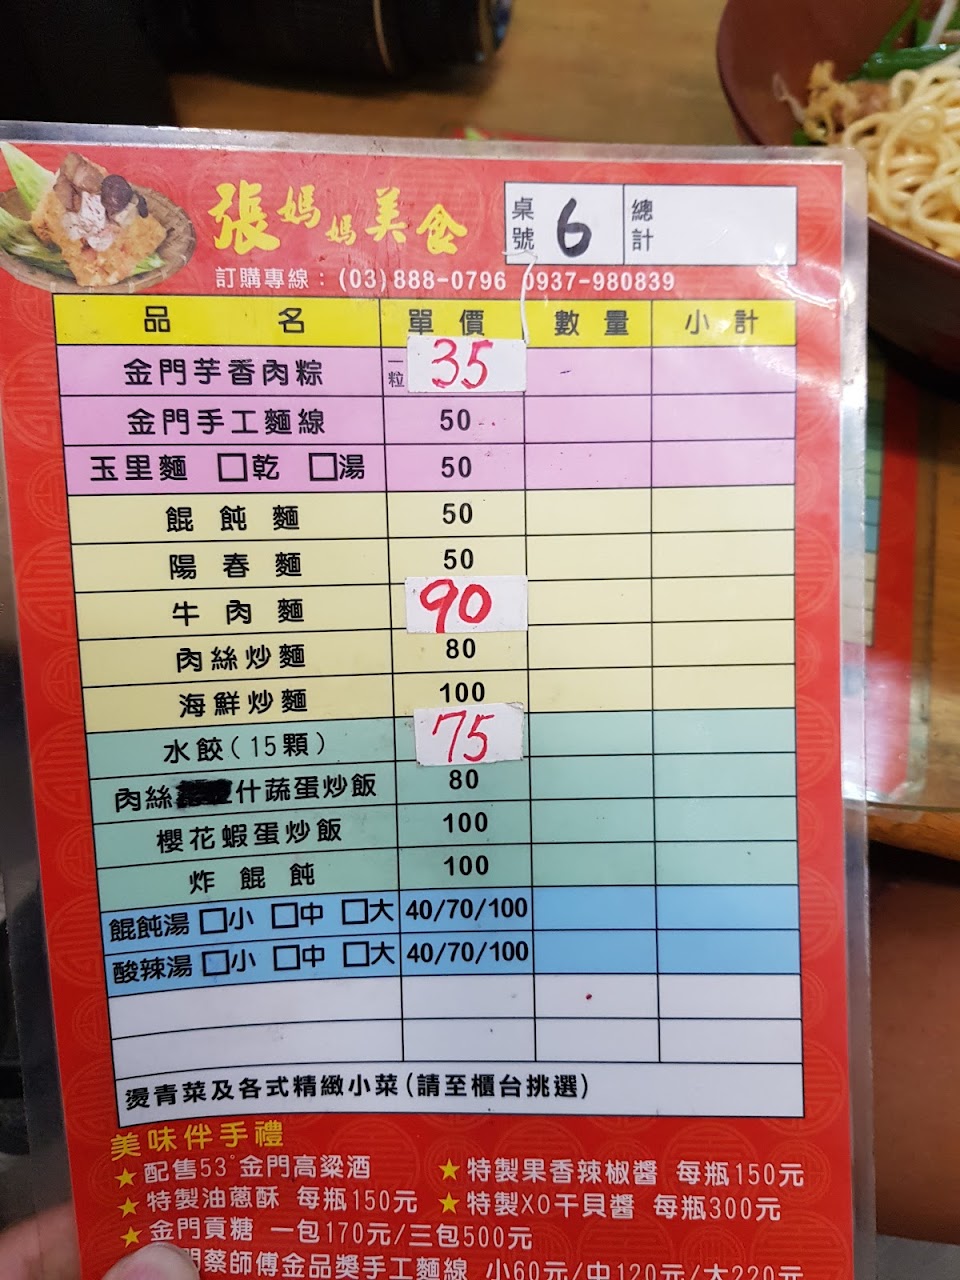 張媽媽美食
桌號 6 總計
訂購專線：(03)888-0796 0937-980839
品名 單價 數量 小計
金門芋香肉粽 一粒 35
金門手工麵線 50
玉里麵 □乾 □湯 50
餛飩麵 50
陽春麵 50
牛肉麵 90
肉絲炒麵 80
海鮮炒麵 100
水餃(15顆) 75
肉絲什蔬蛋炒飯 80
櫻花蝦蛋炒飯 100
炸餛飩 100
餛飩湯 □小 □中 □大 40/70/100
酸辣湯 □小 □中 □大 40/70/100
燙青菜及各式精緻小菜(請至櫃台挑選)
美味伴手禮
★配售53°金門高粱酒 ★特製果香辣椒醬 每瓶150元
★特製油蔥酥 每瓶150元 ★特製XO干貝醬 每瓶300元
★金門貢糖 一包170元/三包500元
門蔡師傅金品獎手工麵線 小60元/中120元/大220元